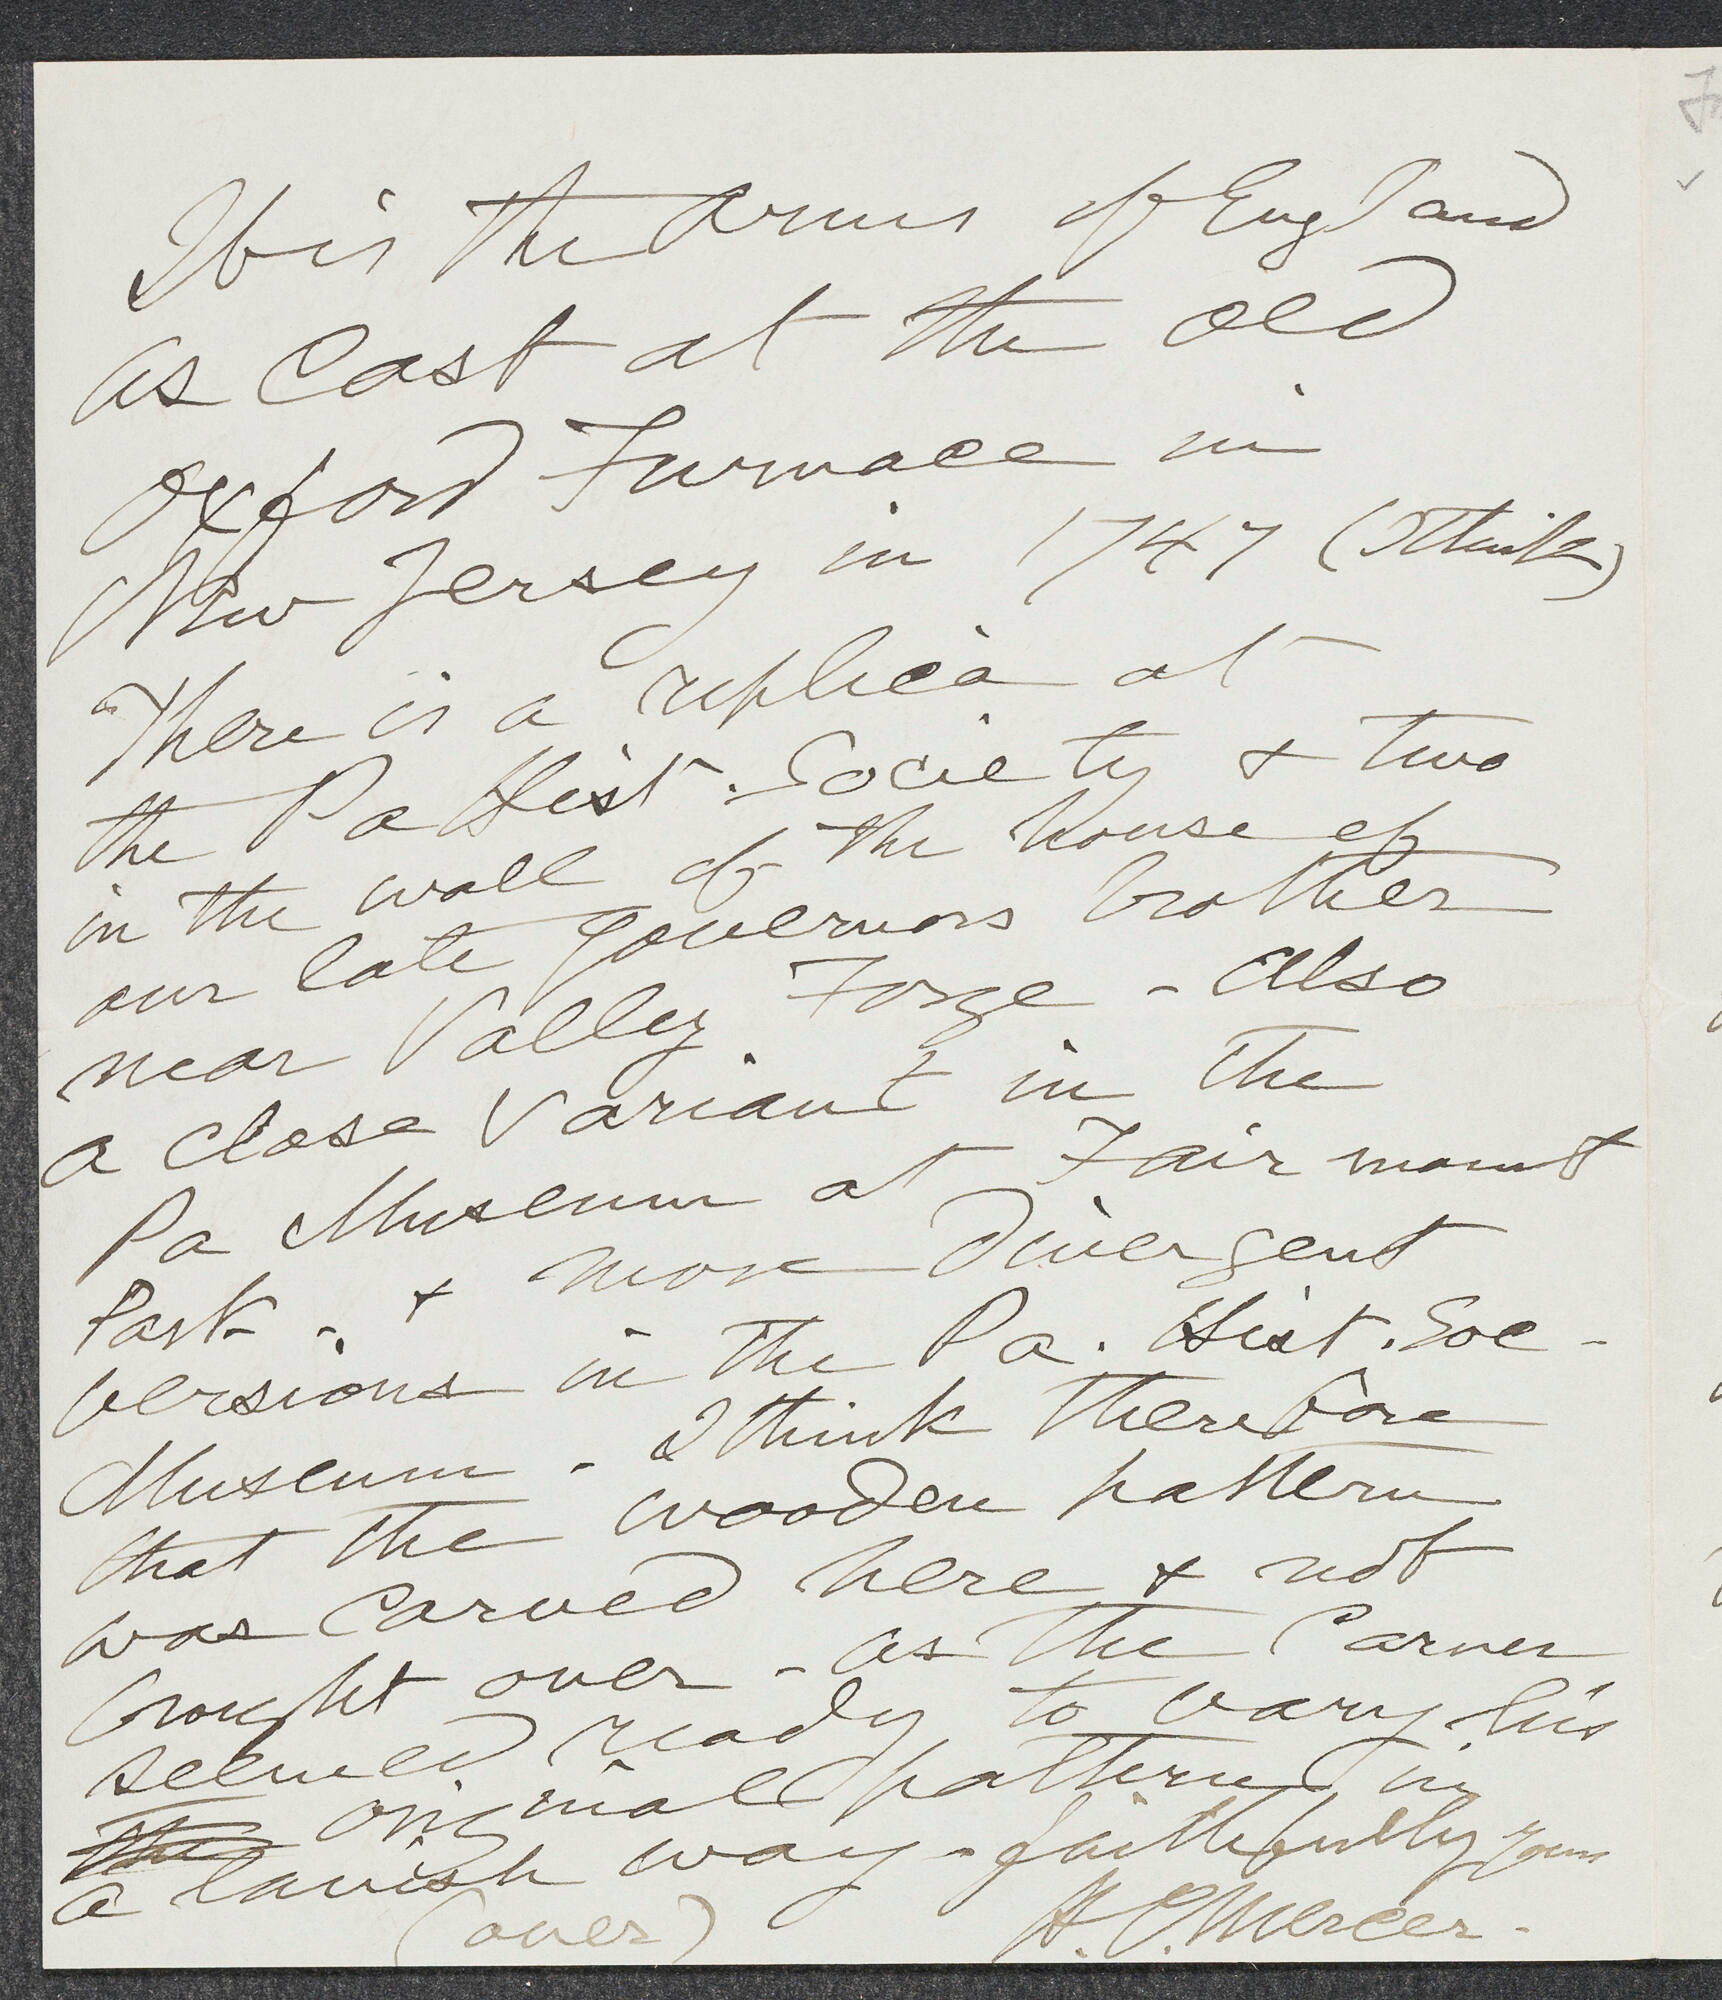 It is the Arms of England
as Cast at the old
Oxford Furnace in
New Jersey in 1747 (I think)
There is a replica at
the Pa Hist. Society & two
in the wall of the house of
our late governors brother
near Valley Forge - also
a close variant in the
Pa Museum at Fairmount
Park - & more divergent
versions in the Pa. Hist. Soc -
Museum - I think therefore
that the wooden pattern
was carved here & not
brought over - as the Carver
seemed ready to vary his
the original pattern in
a lavish way - faithfully yours
(over) H. C. Mercer -